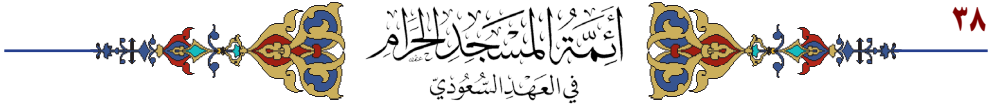 ٣٨
أَئِمَّةُ المَسْجِدِ الحَرَامِ
فِي العَهْدِ السُّعُودِيّ